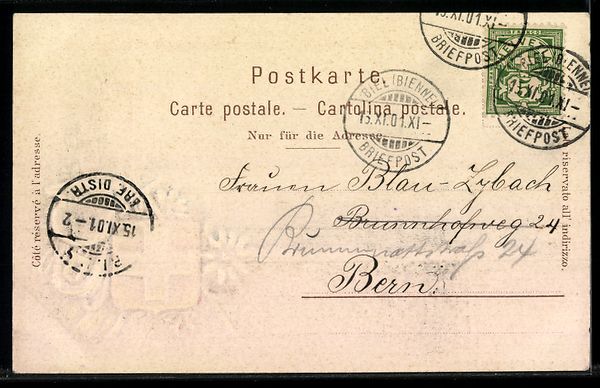 Postkarte.
Carte postale. — Cartolina postale.
Nur für die Adresse.
Côté réservé à l'adresse.
riservato all' indirizzo.
FRANCO
BIEL (BIENNE)
15.XI.01.XI–
BRIEFPOST
15.XI.01.XI–
BRIEFPOST
BIEL (BIENNE)
15.XI.01.XI–
BRIEFPOST
BRF. DISTR.
15.XI.01.–2
Frauen Blau-Zybach
Brunnhofweg 24
24
Bern.